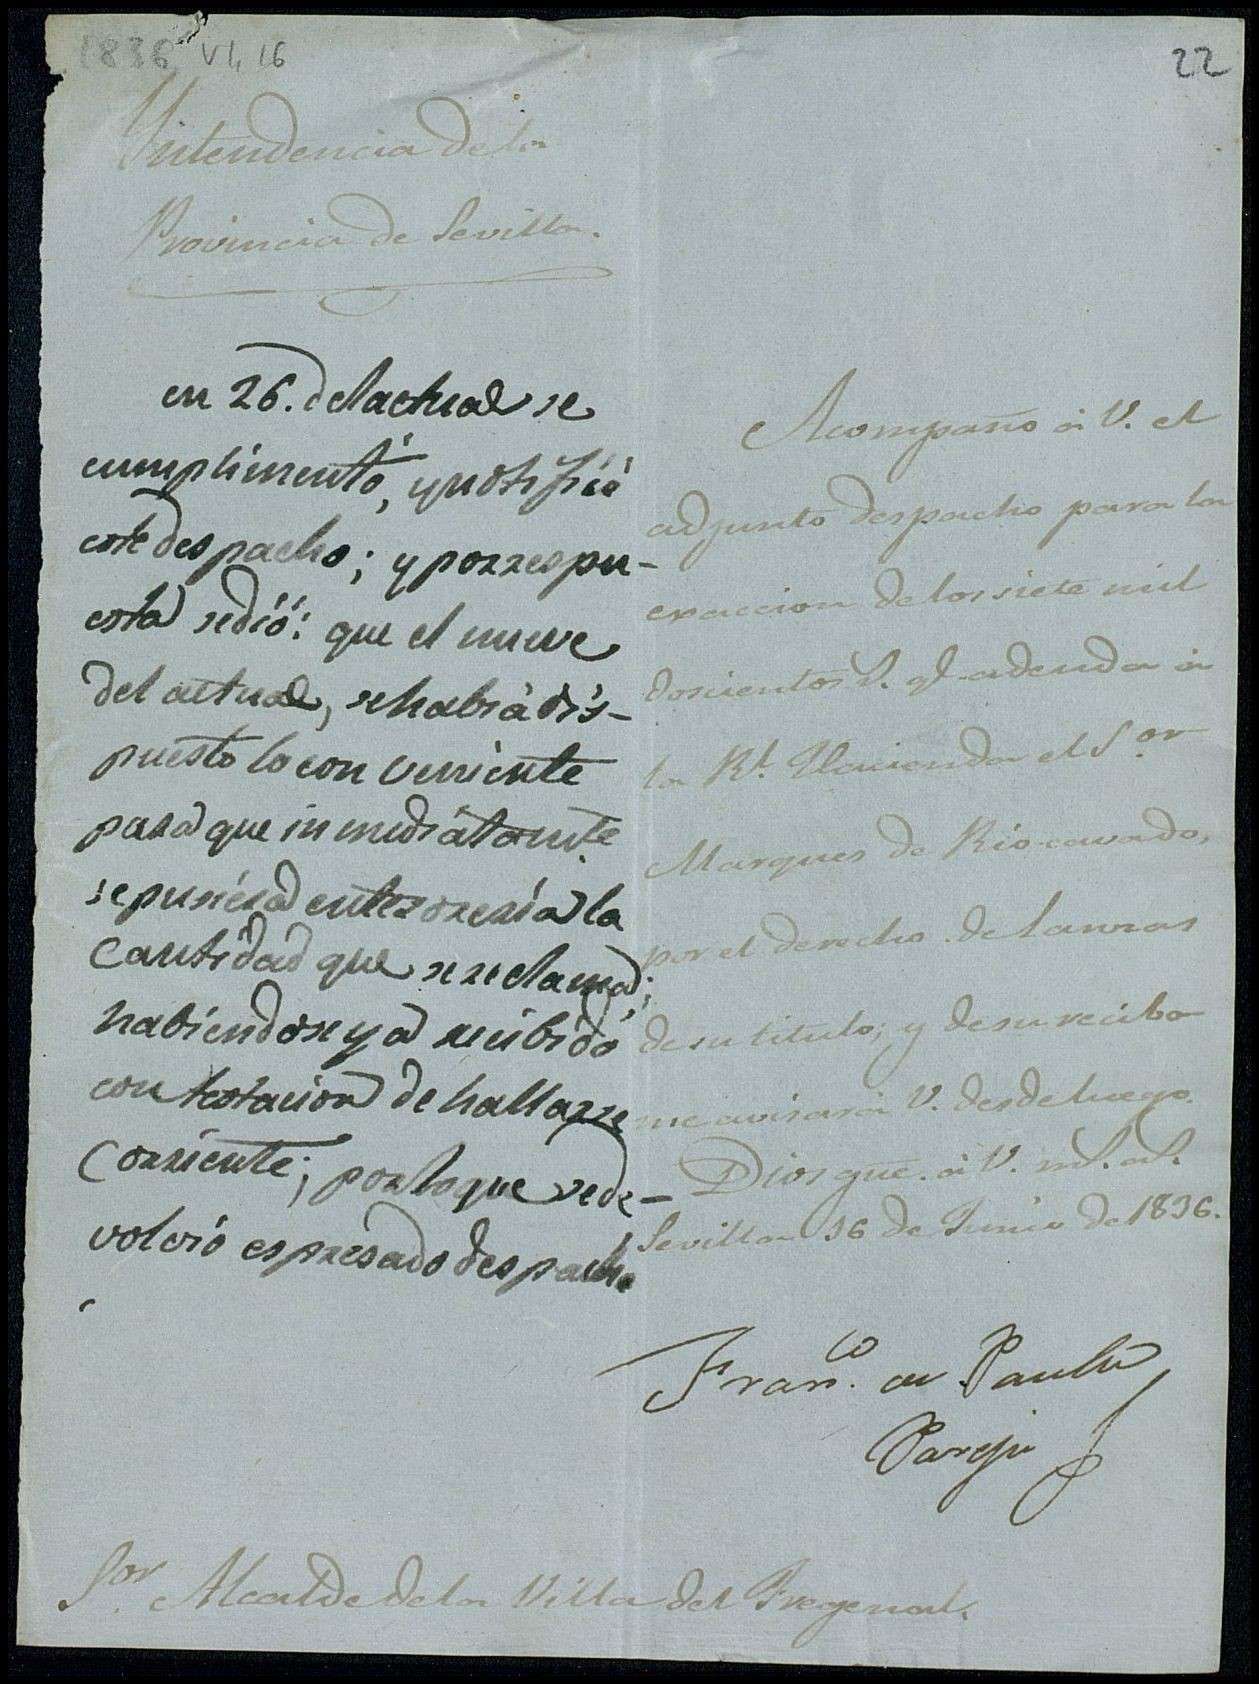 1836 VI, 16
22
Yntendencia de la
Provincia de Sevilla.
en 26. del actual se
cumplimentó, y notifició
este despacho; y por respu-
esta se dió: que el nueve
del actual, se había dis-
puesto lo conveniente
para que inmediatamte.
se pusiera en tezoreria la
cantidad que se reclama;
habiendose ya recibido
contestacion de hallarse
corriente; por lo que se de-
volvió espresado despacho
Acompaño á V. el
adjunto despacho para la
exaccion de los siete mil
doscientos r. q.e adeuda á
la Rl. Hacienda el Sor
Marques de Rio-cavado,
por el derecho de lanzas
de su titulo; y de su recibo
me avisará V. desde luego.
Dios gue. á V. ms. as.
Sevilla 16 de Junio de 1836.
Franco. de Paula
Pareja
Sor. Alcalde de la Villa del Fregenal.